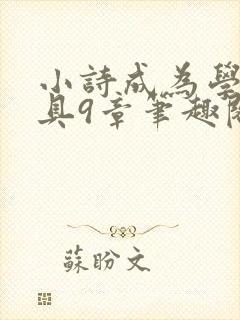 小詩成為學
具9章筆趣閣
蘇盼文